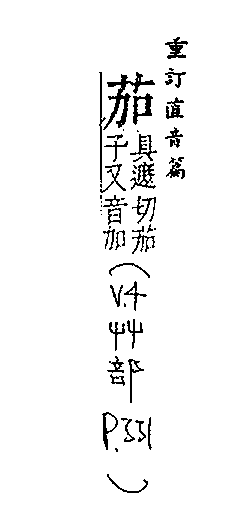 重訂直音篇
茄
具遮切茄
子又音加
(V.4 艸部 P.331)